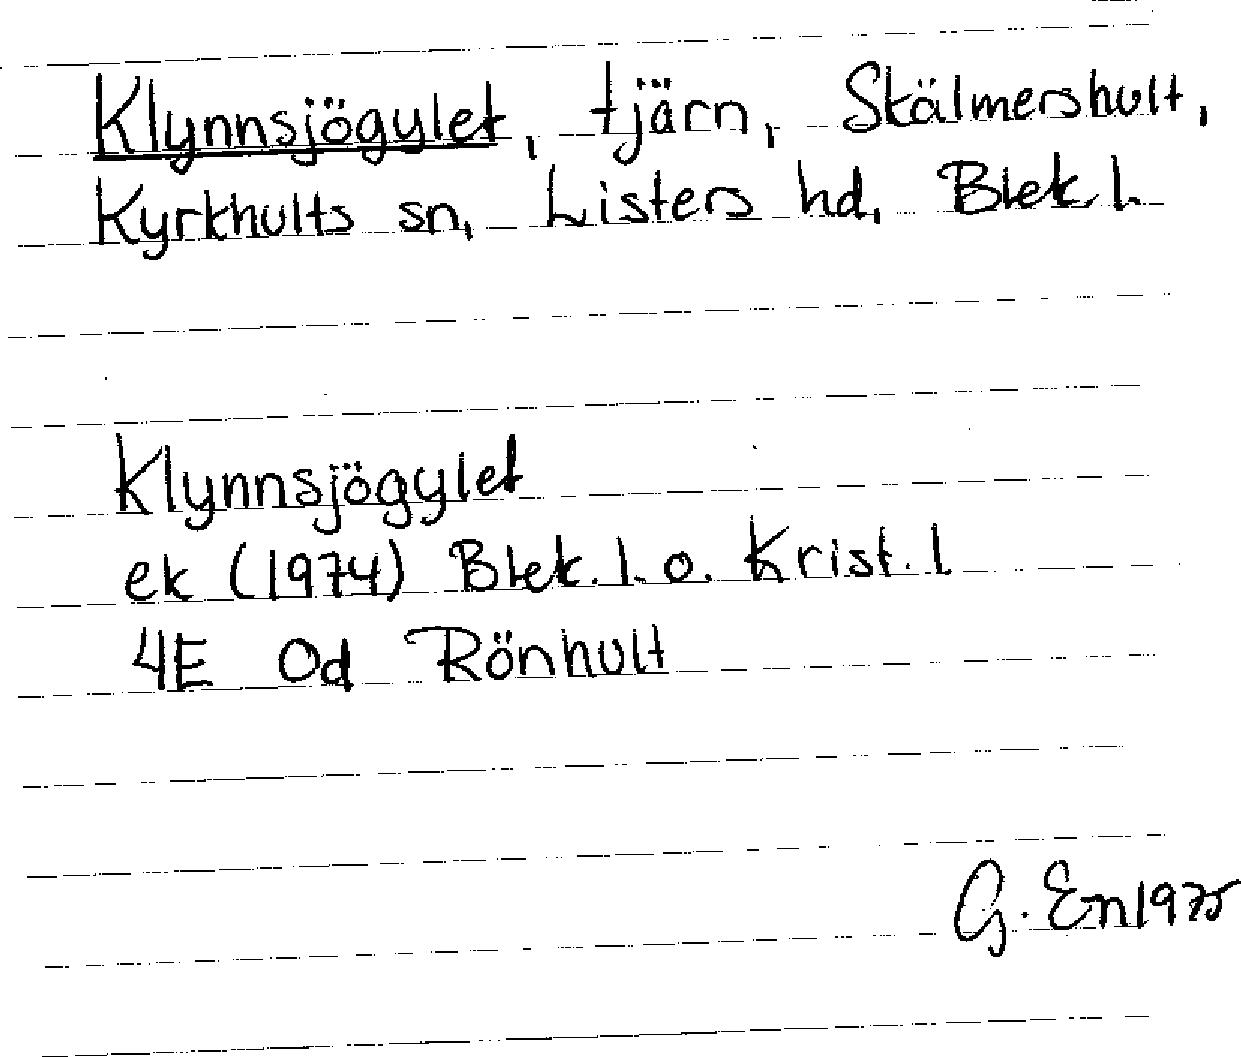 Klynnsjögylet, tjärn, Skälmershult,
Kyrkhults sn, Listers hd, Blek. l.
Klynnsjögylet
ek (1974) Blek. l. o. Krist. l
4E Od Rönhult
G. En 1975